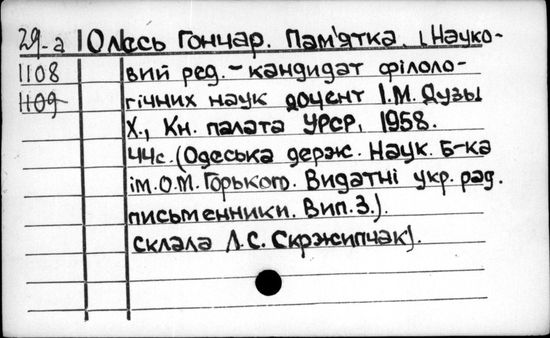 29-а Олесь Гончар. Пам'ятка. (Науко-
1108 вий ред. - кандидат філоло-
1109 гічних наук доцент І.М. Дузь)
Х., Кн. палата УРСР, 1958.
44с. (Одеська держ. Наук. Б-ка
ім. О.М. Горького. Видатні укр. рад.
письменники. Вип. 3.).
Склала Л.С. Скржипчак).